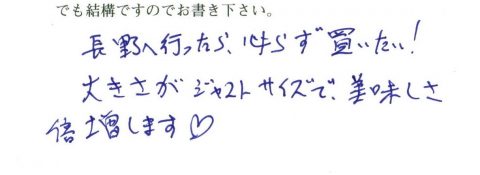 でも結構ですのでお書き下さい。
長野へ行ったら、必らず買いたい!
大きさがジャストサイズで、美味しさ
倍増します♡